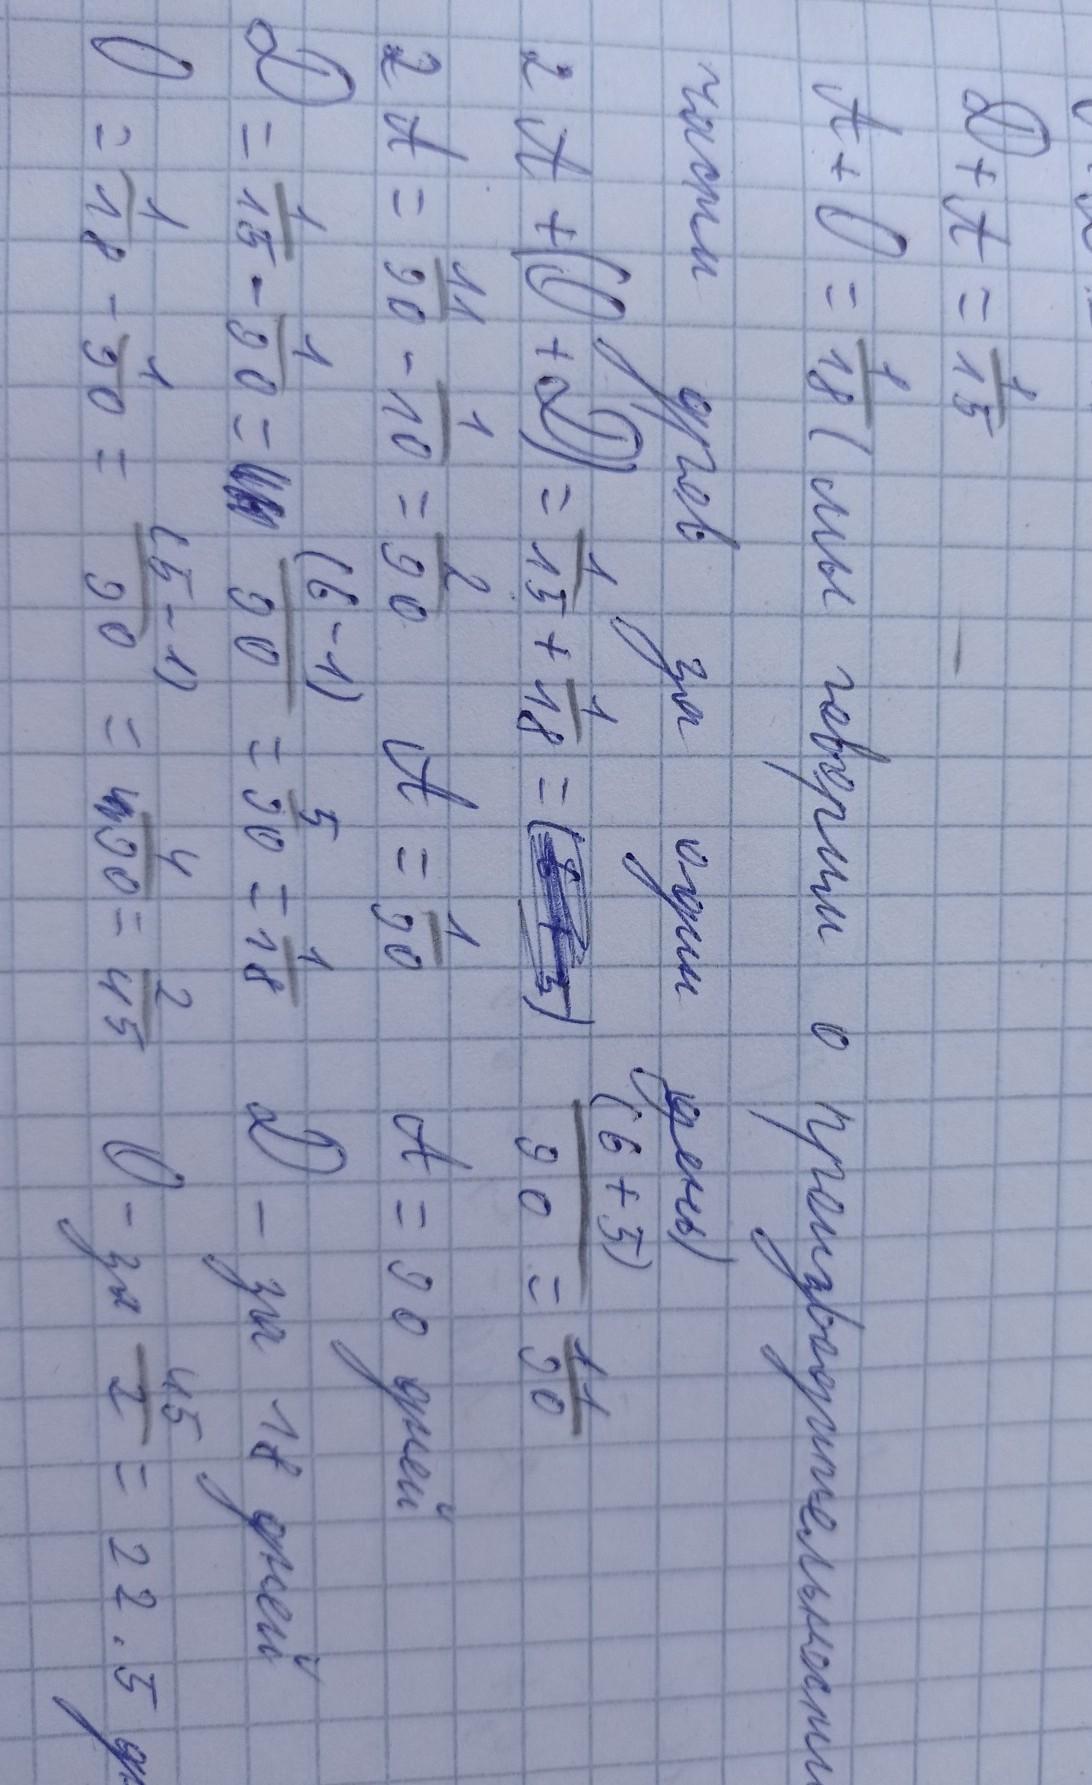 Д + А = 1/15
А + О = 1/18 (мы говорим о производительности
части дров за один день)
2 А + (О + Д) = 1/15 + 1/18 = (6 + 5)/90 = 11/90
2 А = 11/90 - 1/10 = 2/90 А = 1/90 А = 90 дней
Д = 1/15 - 1/90 = (6 - 1)/90 = 5/90 = 1/18 Д - за 18 дней
О = 1/18 - 1/90 = (5 - 1)/90 = 4/90 = 2/45 О - за 45/2 = 22.5